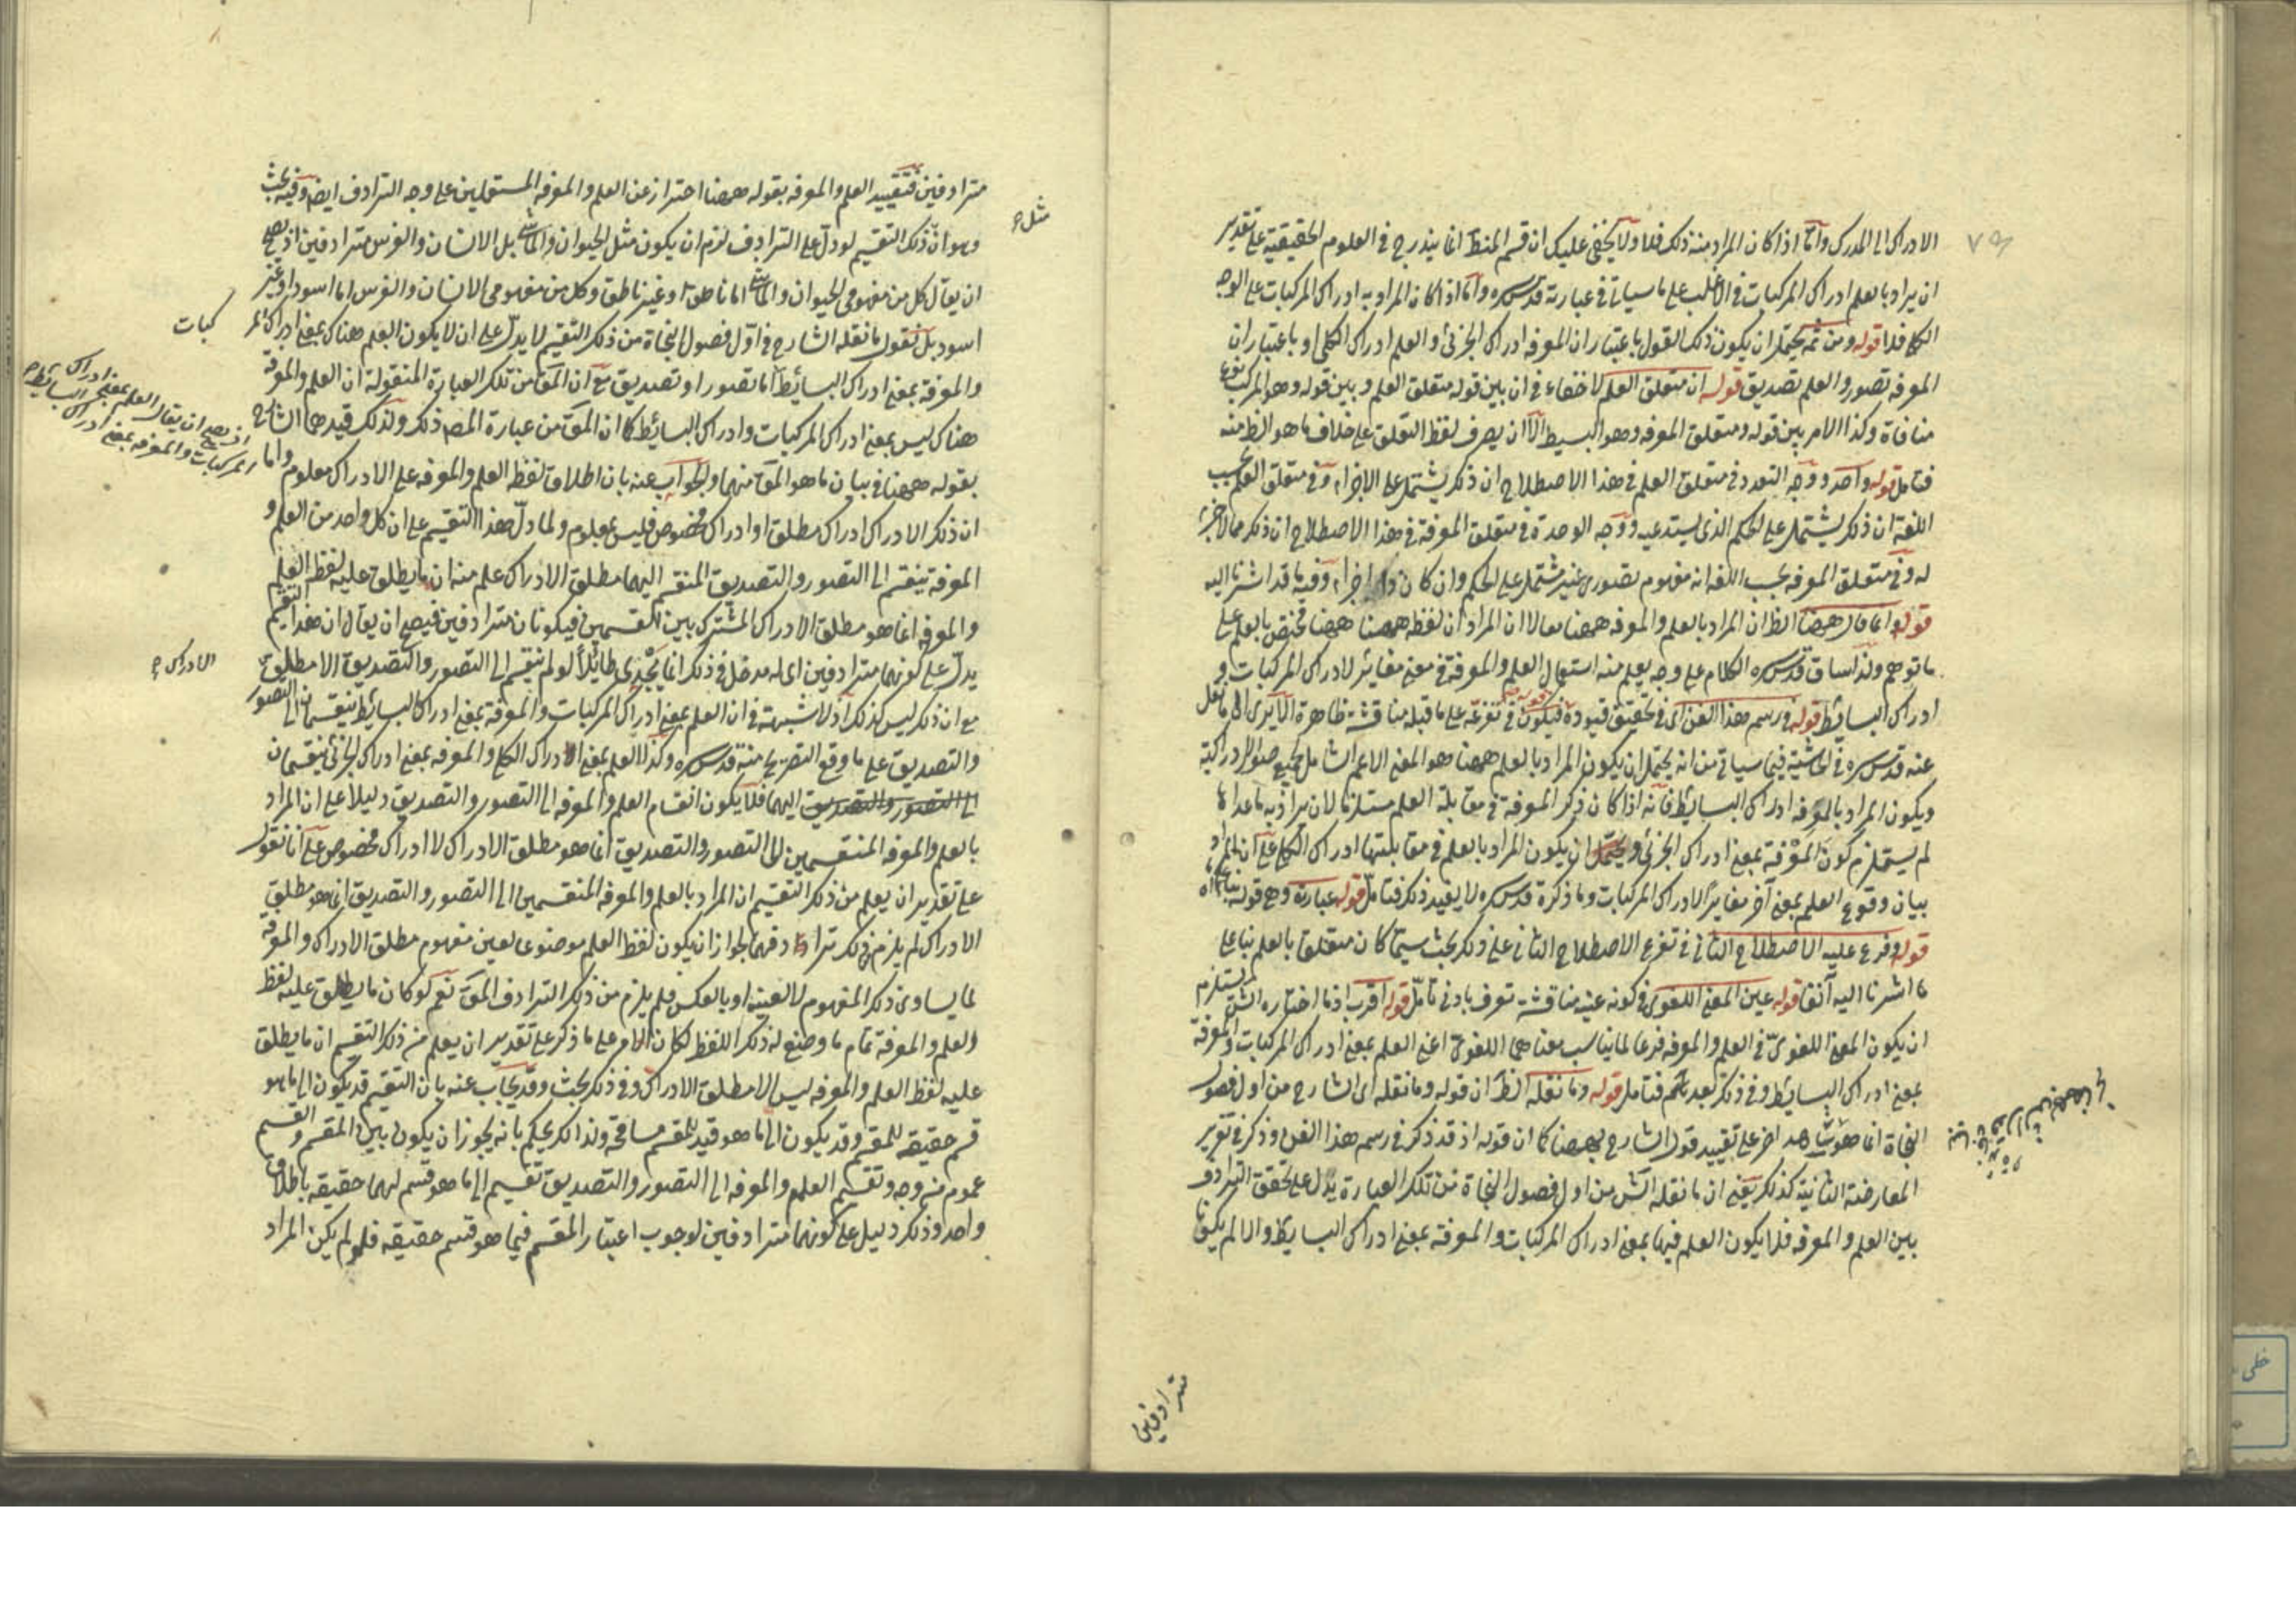 الادراك الى المدرك وامّا اذا كان المراد منه ذلك فلا ولا يخفى عليك ان قسم المنطق انما يندرج فى العلوم الحقيقية على تقدير
ان يراد بالعلم ادراك المركبات فى الاغلب على ما سياتى فى عبارته قدس سره وامّا اذا كان المراد به ادراك المركبات على الوجه
الكلى فلا قوله ومن ثمّه يحتمل ان يكون ذلك القول باعتبار ان المعرفه ادراك الجزئى والعلم ادراك الكلى او باعتبار ان
المعرفه تصور والعلم تصديق قوله ان متعلق العلم لا خفاء فى ان بين قوله متعلق العلم وبين قوله وهو المركب نوع
منافاة وكذا الامر بين قوله ومتعلق المعرفه وهو البسيط الّا ان يصرف لفظ التعلق على خلاف ما هو الظ منه
فتامل قوله واحد ووجه التعدد فى متعلق العلم فى هذا الاصطلاح ان ذلك يشتمل على الاجزاء وفى متعلق العلم بحسب
اللغة ان ذلك يشتمل على الحكم الذى يستدعيه ووجه الوحدة فى متعلق المعرفة فى هذا الاصطلاح ان ذلك مما لا جزء
له وفى متعلق المعرفه بحسب اللغه انه مفهوم تصورى غير مشتمل على الحكم وان كان ذا اجزاء وفيه ما قد اشرنا اليه
قوله وانما قال ههنا الظ ان المراد بالعلم والمعرفه ههنا لا ان المراد ان لفظه ههنا مختص بالعلم على
ما توهم ولذا ساق قدس سره الكلام على وجه يعلم منه استعمال العلم والمعرفة فى معنى مغاير لادراك المركبات و
ادراك البسائط قوله ورسم هذا الفن اى فى تحقيق قيوده فيكون فى تفرعه على ما قبله مناقشة ظاهرة الا يرى الى ما نقل
عنه قدس سره فى الحاشية فيما سياتى من انه يحتمل ان يكون المراد بالعلم ههنا هو المعنى الاعم الشامل لجميع صور الادراكية
ويكون المراد بالمعرفه ادراك البسائط فانه اذا كان ذكر المعرفة فى مقابلة العلم مستلزما لان يراد به ما عداها
لم يستلزم كون المعرفة بمعنى ادراك الجزئى ان يكون المراد بالعلم فى مقابلتها ادراك الكلى على ان المراد
بيان وقوع العلم بمعنى آخر مغاير لادراك المركبات وما ذكره قدس سره لا يفيد ذلك فتامل قوله عبارته وهى قوله
قوله وفرع عليه الاصطلاح الثانى فى تفرع الاصطلاح الثانى على ذلك بحث سيما كان متعلقا بالعلم بناء على
ما اشرنا اليه آنفا قوله عين المعنى اللغوى فى كونه عينه مناقشة تعرف بادنى تامّل قوله اقرب اذ ما اختاره الش يستلزم
ان يكون المعنى اللغوىّ فى العلم والمعرفه فرعا لما يناسب معناهما اللغوىّ اعنى العلم بمعنى ادراك المركبات والمعرفة
بمعنى ادراك البسائط وفى ذلك بعد تام فتامل قوله وما نقله الظ ان قوله وما نقله اى الشارح من اول فصول
النجاة انما هو شاهد اخر على تقييد قول الشارح بههنا كما ان قوله اذ قد ذكر فى رسم هذا الفن وذكر فى تقرير
المعارضة الثانية كذلك يعنى ان ما نقله الش من اول فصول النجاة من تلك العبارة يدل على تحقق الترادف
بين العلم والمعرفه فلا يكون العلم فيها بمعنى ادراك المركبات والمعرفة بمعنى ادراك البسايط والا لم يكونا
مترادفين
مترادفين فتقييد العلم والمعرفه بقوله ههنا احتراز عن العلم والمعرفه المستعملين على وجه الترادف ايضا وفيه بحث
وهو انّ ذلك التقسيم لو دلّ على الترادف لزم ان يكون مثل الحيوان والماشى بل الانسان والفرس مترادفين اذ يصح
مثل
ان يقال كل من مفهومى الحيوان والماشى اما ناطق او غير ناطق وكل من مفهومى الانسان والفرس اما اسود او غير
اسود بل نقول ما نقله الشارح فى اوّل فصول النجاة من ذلك التقسيم لا يدلّ على ان لا يكون العلم هناك بمعنى ادراك المر
كبات
والمعرفة بمعنى ادراك البسائط امّا تصور او تصديق مع ان المق من تلك العبارة المنقولة ان العلم والمعرفة
اذ يصح ان يقال العلم بمعنى ادراك
المركبات والمعرفه بمعنى ادراك البسائط
هناك ليس بمعنى ادراك المركبات وادراك البسائط كما ان المق من عبارة المص ذلك ولذلك قيدهما الشارح
بقوله ههنا فى بيان ما هو المق منهما والجواب عنه بان اطلاق لفظ العلم والمعرفه على الادراك معلوم واما
ان ذلك الادراك ادراك مطلق او ادراك مخصوص فليس بمعلوم ولما دلّ هذا التقسيم على ان كل واحد من العلم و
المعرفة ينقسم الى التصور والتصديق المنقسم اليهما مطلق الادراك علم منه ان ما يطلق عليه لفظ العلم
والمعرفه انما هو مطلق الادراك المشترك بين القسمين فيكونان مترادفين فيصح ان يقال ان هذا التقسيم
يدلّ على كونهما مترادفين اى له مدخل فى ذلك انما يُجْدى طائلاً لو لم ينقسم الى التصور والتصديق الا مطلق
الادراك
مع ان ذلك ليس كذلك اذ لا شبهة فى ان العلم بمعنى ادراك المركبات والمعرفة بمعنى ادراك البسائط ينقسمان الى التصور
والتصديق على ما وقع التصريح منه قدس سره وكذا العلم بمعنى ادراك الكلى والمعرفه بمعنى ادراك الجزئى ينقسمان
الى التصور والتصديق اليهما فلا يكون انقسام العلم والمعرفه الى التصور والتصديق دليلا على ان المراد
بالعلم والمعرفه المنقسمين الى التصور والتصديق انما هو مطلق الادراك لا ادراك مخصوص على انا نقول
على تقدير ان يعلم من ذلك التقسيم ان المراد بالعلم والمعرفه المنقسمين الى التصور والتصديق انما هو مطلق
الادراك لم يلزم من ذلك ترادفهما لجواز ان يكون لفظ العلم موضوعا لعين مفهوم مطلق الادراك والمعرفه
لما يساوى ذلك المفهوم لا لعينه او بالعكس فلم يلزم من ذلك الترادف المق نعم لو كان ما يطلق عليه لفظ
العلم والمعرفة تمام ما وضع له ذلك اللفظ لكان الامر على ما ذكر على تقدير ان يعلم من ذلك التقسيم ان ما يطلق
عليه لفظ العلم والمعرفه ليس الا مطلق الادراك وفى ذلك بحث وقد يجاب عنه بان التقسيم قد يكون الى ما هو
قسم حقيقه للمقسم وقد يكون الى ما هو قيد للقسم مسامحة ولذا لك يحكم بانه يجوز ان يكون بين المقسم والقسم
عموم من وجه وتقسيم العلم والمعرفه الى التصور والتصديق تقسيم الى ما هو قسم لهما حقيقه باطلاق
واحد وذلك دليل على كونهما مترادفين لوجوب اعتبار المقسم فيما هو قسم حقيقه فلو لم يكن المراد